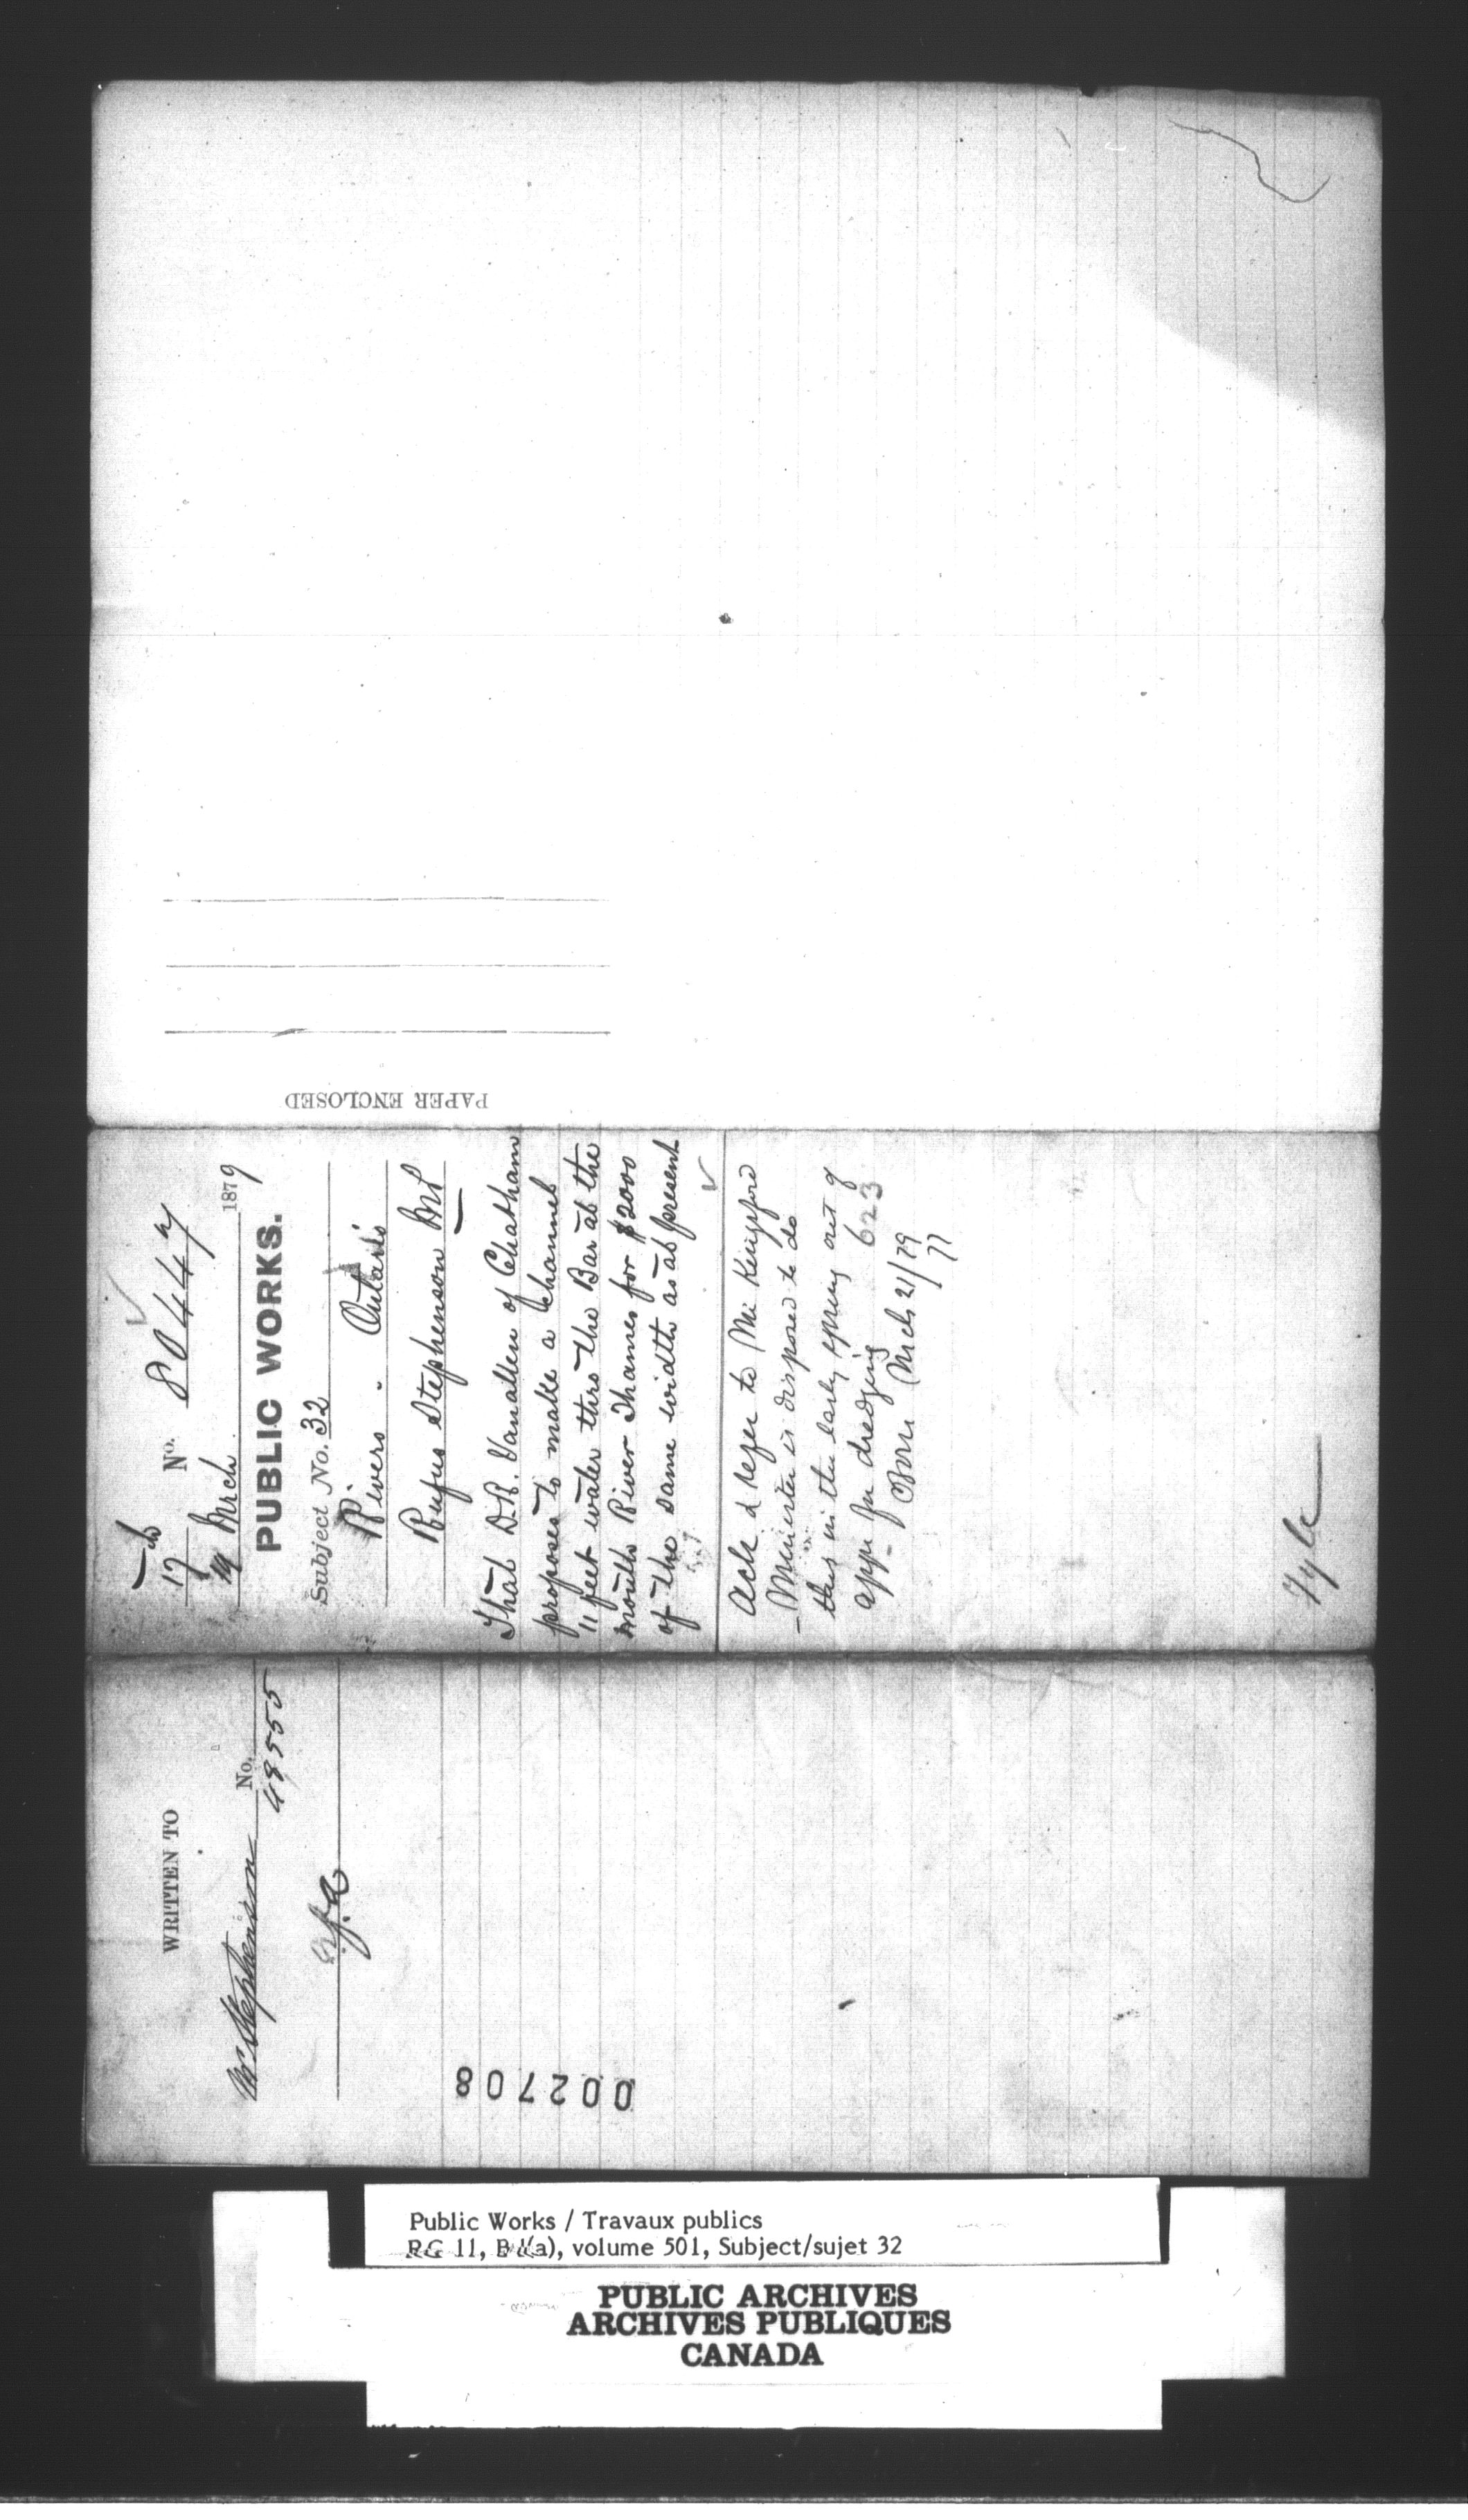 PAPER ENCLOSED
17 No. 80447
19 Mrch 1879
PUBLIC WORKS.
Subject No. 32
Rivers . Ontario
Rufus Stephenson MP
That D.R. Vanallen of Chatham
proposes to make a channel
11 feet water thro the Bar at the
mouth River Thames for $2000
of the same width as at present
Ack & refer to Mr Kingsford
- Minister is disposed to do
this in the early spring out of
app. for dredging 623
Mch 21/79
77
Fyle
WRITTEN TO
No.
Mr Stephenson 48555
002708
Public Works / Travaux publics
RG 11, B 1(a), volume 501, Subject/sujet 32
PUBLIC ARCHIVES
ARCHIVES PUBLIQUES
CANADA